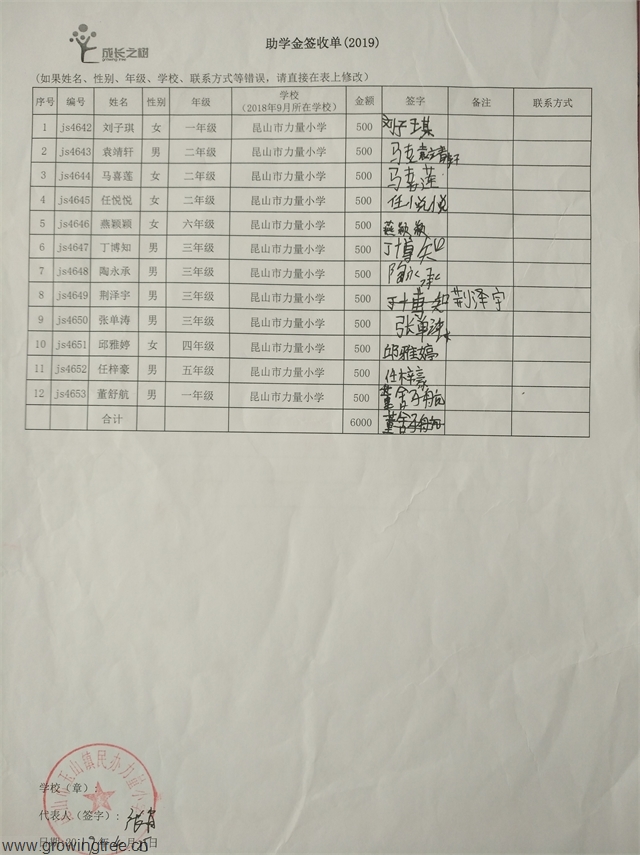 成长之树
助学金签收单(2019)
(如果姓名、性别、年级、学校、联系方式等错误，请直接在表上修改)
序号 编号 姓名 性别 年级 学校 (2018年9月所在学校) 金额 签字 备注 联系方式
1 js4642 刘子琪 女 一年级 昆山市力量小学 500 刘子琪
2 js4643 袁靖轩 男 二年级 昆山市力量小学 500 袁靖轩
3 js4644 马喜莲 女 二年级 昆山市力量小学 500 马喜莲
4 js4645 任悦悦 女 二年级 昆山市力量小学 500 任悦悦
5 js4646 燕颖颖 女 六年级 昆山市力量小学 500 燕颖颖
6 js4647 丁博知 男 三年级 昆山市力量小学 500 丁博知
7 js4648 陶永承 男 三年级 昆山市力量小学 500 陶永承
8 js4649 荆泽宇 男 三年级 昆山市力量小学 500 丁博知 荆泽宇
9 js4650 张单涛 男 三年级 昆山市力量小学 500 张单涛
10 js4651 邱雅婷 女 四年级 昆山市力量小学 500 邱雅婷
11 js4652 任梓豪 男 五年级 昆山市力量小学 500 任梓豪
12 js4653 董舒航 男 一年级 昆山市力量小学 500 董舒航
合计 6000
学校（章）:
代表人（签字）:
www.growingtree.cn